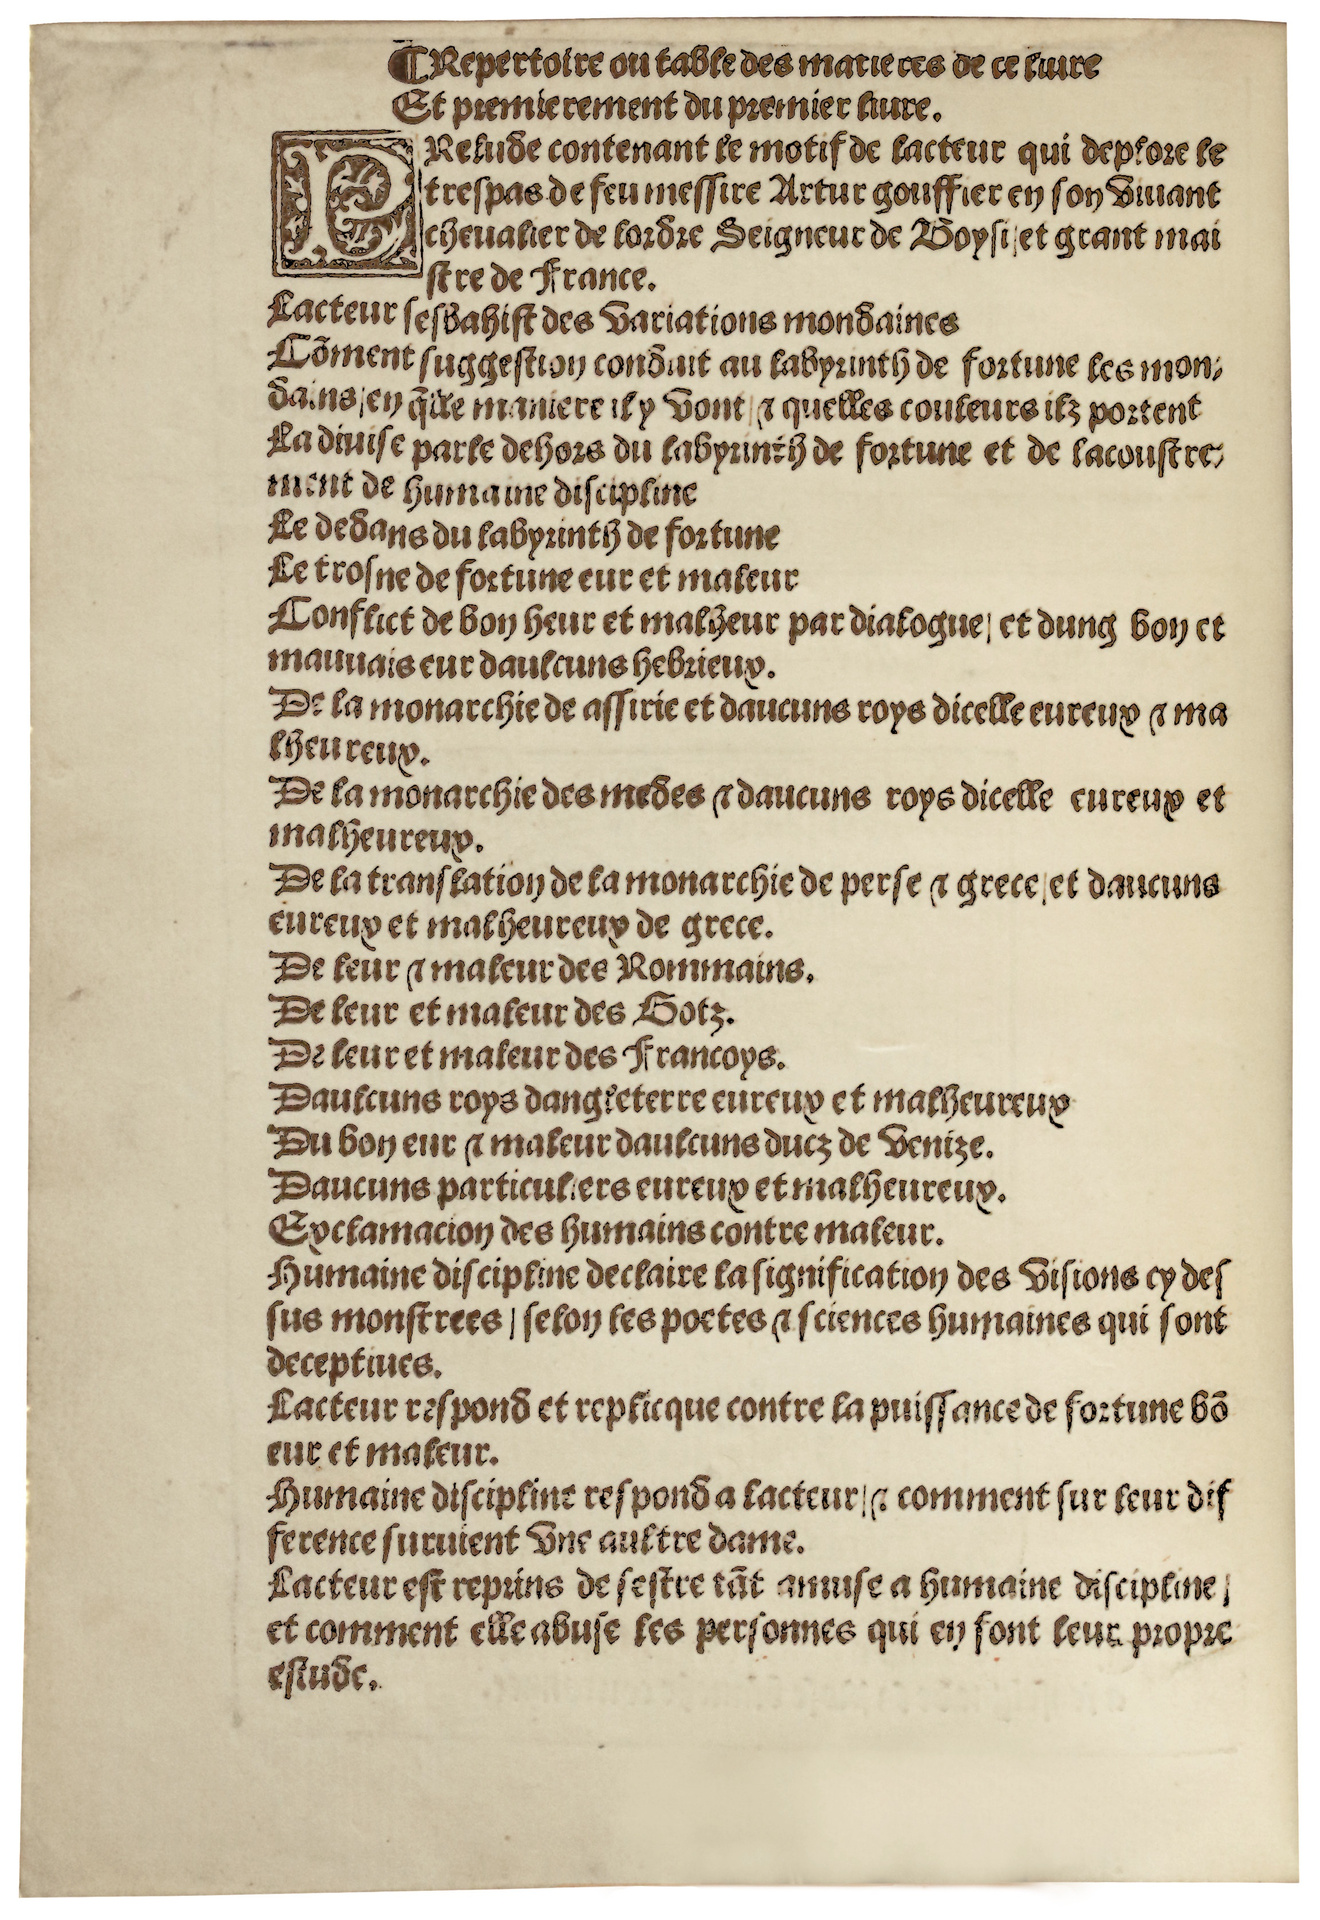 ¶Repertoire ou table des matieres de ce liure
Et premierement du premier liure.
PRelude contenant le motif de lacteur qui deplore le
trespas de feu messire Artur gouffier en son viuant
cheualier de lordre Seigneur de Boysi/et grant mai
stre de France.
Lacteur sesbahist des variations mondaines
Cõment suggestion conduit au labyrinth de fortune les mon/
dains/en q̃lle maniere il y vont/⁊ quelles couleurs ilz portent
La diuise par le dehors du labyrinth de fortune et de lacoustre/
ment de humaine discipline
Le dedans du labyrinth de fortune
Le trosne de fortune eur et maleur
Conflict de bon heur et malheur par dialogue/ et dung bon et
mauuais eur daulcuns hebrieux.
De la monarchie de assirie et daucuns roys dicelle eureux ⁊ ma
lheureux.
De la monarchie des medes ⁊ daucuns roys dicelle eureux et
malheureux.
De la translation de la monarchie de perse ⁊ grece/et daucuns
eureux et malheureux de grece.
De leur ⁊ maleur des Rommains.
De leur et maleur des Gotz.
De leur et maleur des Francoys.
Daulcuns roys dangleterre eureux et malheureux
Du bon eur ⁊ maleur daulcuns ducz de Venize.
Daucuns particuliers eureux et malheureux.
Exclamacion des humains contre maleur.
Humaine discipline declaire la signification des visions cy des
sus monstrees/ selon les poetes ⁊ sciences humaines qui sont
deceptiues.
Lacteur respond et replicque contre la puissance de fortune bõ
eur et maleur.
Humaine discipline respond a lacteur/⁊ comment sur leur dif
ference suruient vne aultre dame.
Lacteur est reprins de sestre tãt amuse a humaine discipline/
et comment elle abuse les personnes qui en font leur propre
estude.